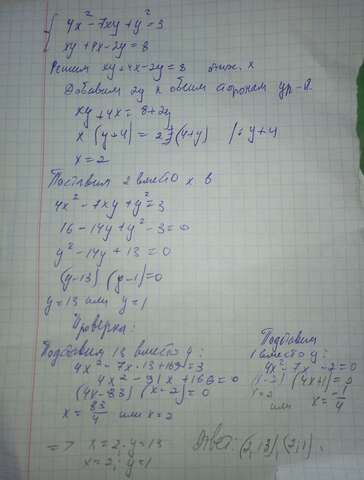 4x² - 7xy + y² = 3
xy + 4x - 2y = 8
Решим xy + 4x - 2y = 8 отн. x
Добавим 2y к обеим сторонам ур-я.
xy + 4x = 8 + 2y
x (y+4) = 2 (4+y) | : y+4
x = 2
Поставим 2 вместо x в
4x² - 7xy + y² = 3
16 - 14y + y² - 3 = 0
y² - 14y + 13 = 0
(y-13) (y-1) = 0
y = 13 или y = 1
Проверка:
Подставим 13 вместо y:
4x² - 7x · 13 + 169 = 3
4x² - 91x + 166 = 0
(4x - 83) (x - 2) = 0
x = 83/4 или x = 2
Подставим
1 вместо y:
4x² - 7x - 2 = 0
(x-2) (4x+1) = 0
x = 2
или x = -1/4
=> x = 2; y = 13
x = 2; y = 1
Ответ: (2, 13), (2; 1).